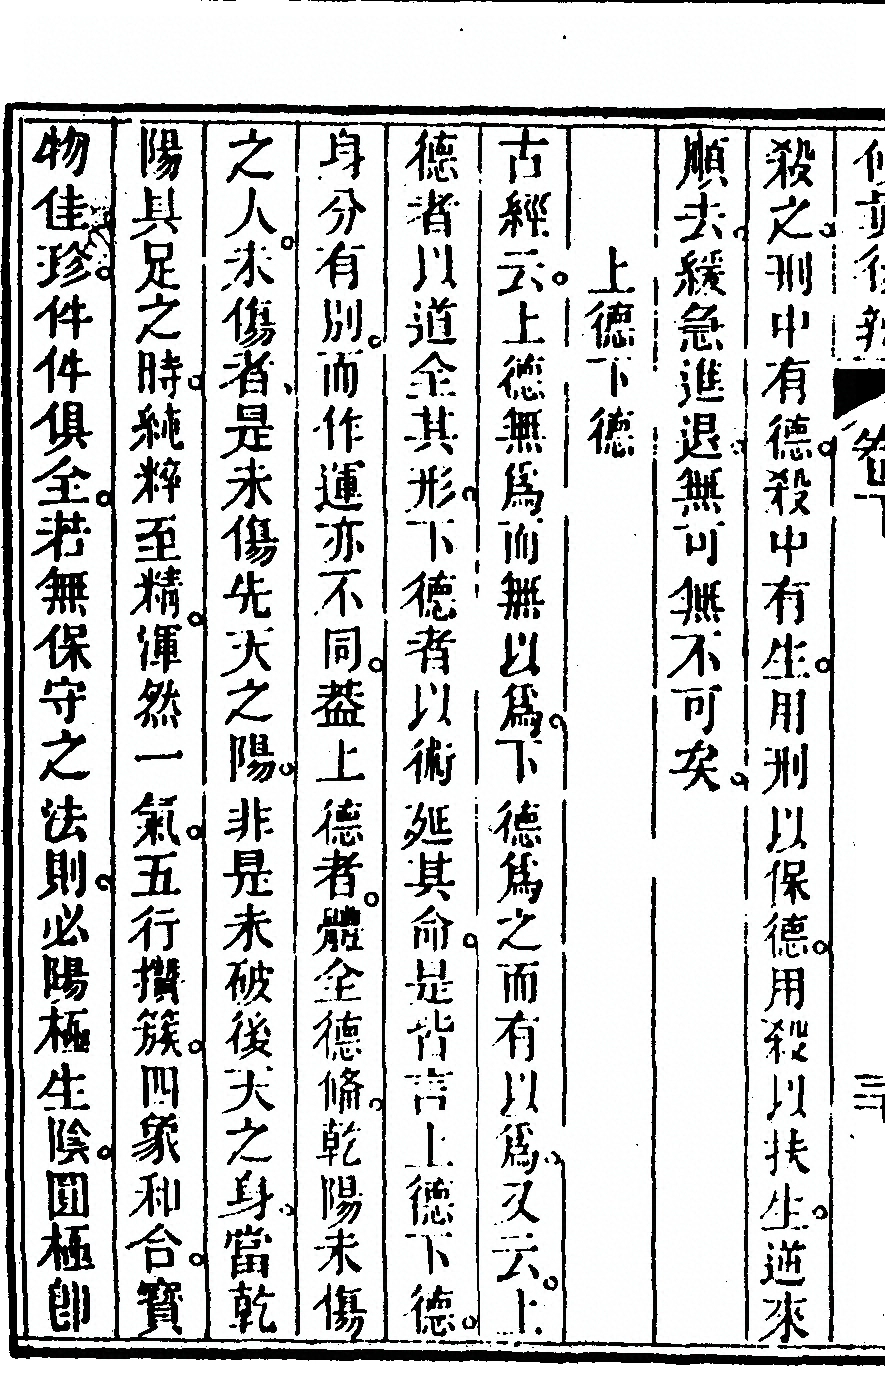 殺之。刑中有德。殺中有生。用刑以保德。用殺以扶生。逆來
順去。緩急進退。無可無不可矣。
上德下德
古經云。上德無爲而無以爲。下德爲之而有以爲。又云。上
德者以道全其形。下德者以術延其命。是皆言上德下德。
身分有別。而作運亦不同。葢上德者。體全德備。乾陽未傷
之人。未傷者、是未傷先天之陽。非是未破後天之身。當乾
陽具足之時。純粹至精。渾然一氣。五行攢簇。四象和合。寶
物佳珍。件件俱全。若無保守之法則。必陽極生陰。圓極卽
卷下
三